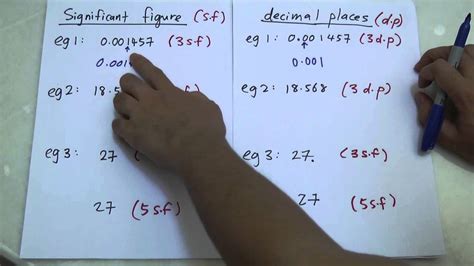 Significant figure (s.f)
eg 1: 0.001457 (3 s.f)
0.001
eg 2: 18.5
eg 3: 27
27 (5 s.f)
decimal places (d.p)
eg 1: 0.001457 (3 d.p)
0.001
eg 2: 18.568 (3 d.p)
eg 3: 27. (3 s.f)
27 (5 s.f)